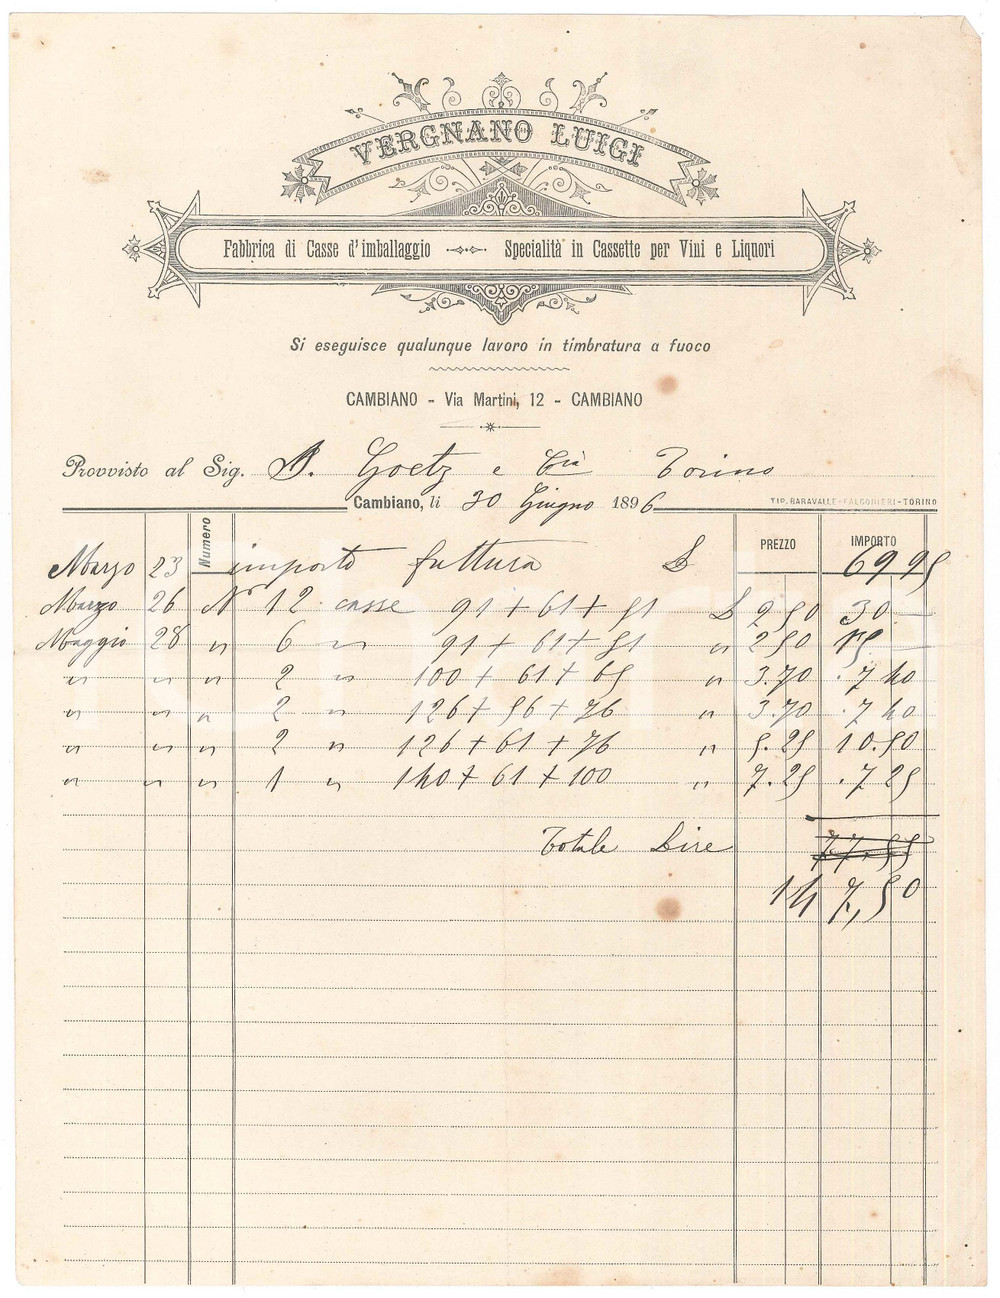 VERGNANO LUIGI
Fabbrica di Casse d'imballaggio Specialità in Cassette per Vini e Liquori
Si eseguisce qualunque lavoro in timbratura a fuoco
CAMBIANO - Via Martini, 12 - CAMBIANO
Provvisto al Sig. Goetz e Cia Torino
Cambiano, li 30 Giugno 1896
TIP. BARAVALLE-FALCONIERI-TORINO
Numero PREZZO IMPORTO
Marzo 23 importo fattura £ 69 95
Marzo 26 No 12 casse 91+61+51 £ 2 50 30 —
Maggio 28 " 6 " 91+61+51 " 2 50 15 —
" " " 2 " 100+61+65 " 3.70 .7 40
" " " 2 " 126+56+76 " 3.70 .7 40
" " " 2 " 126+61+76 " 5.25 10.50
" " " 1 " 140+61+100 " 7.25 .7 25
Totale Lire 77,55
147,50